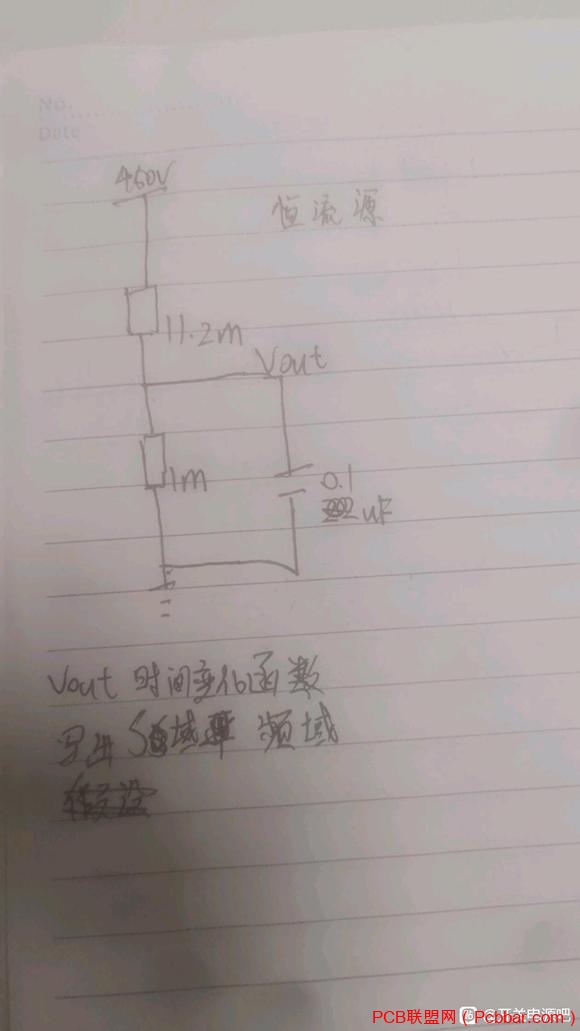 No.
Date
450V
恒流源
11.2m
Vout
1m
0.1
uF
Vout 时间变化函数
写出S域 频域
PCB联盟网（Pcbbar.com）
@开关电源吧